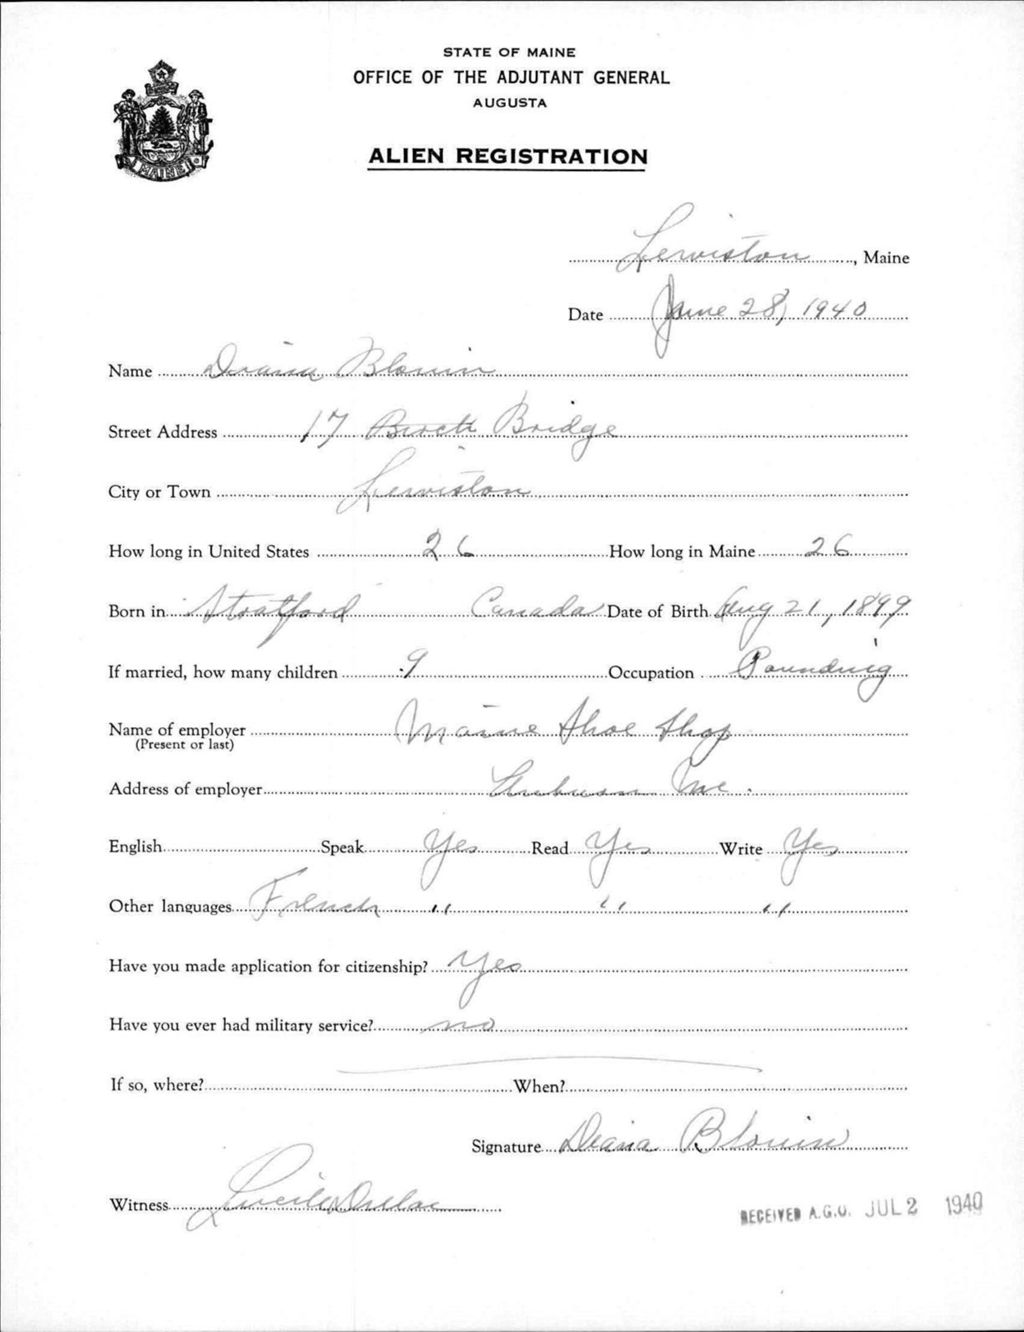 STATE OF MAINE
OFFICE OF THE ADJUTANT GENERAL
AUGUSTA
MAINE
ALIEN REGISTRATION
Lewiston, Maine
Date June 28, 1940
Name Diana Blouin
Street Address 17 Bridge
City or Town Lewiston
How long in United States 26 How long in Maine 26
Born in Stratford Canada Date of Birth Aug 21, 1899
If married, how many children 9 Occupation Pounding
Name of employer Maine Shoe Shop
(Present or last)
Address of employer Auburn Me.
English Speak Yes Read Yes Write Yes
Other languages French " " "
Have you made application for citizenship? Yes
Have you ever had military service? no
If so, where? When?
Signature Deana Blouin
Witness Lucile
RECEIVED A.G.O. JUL 2 1940